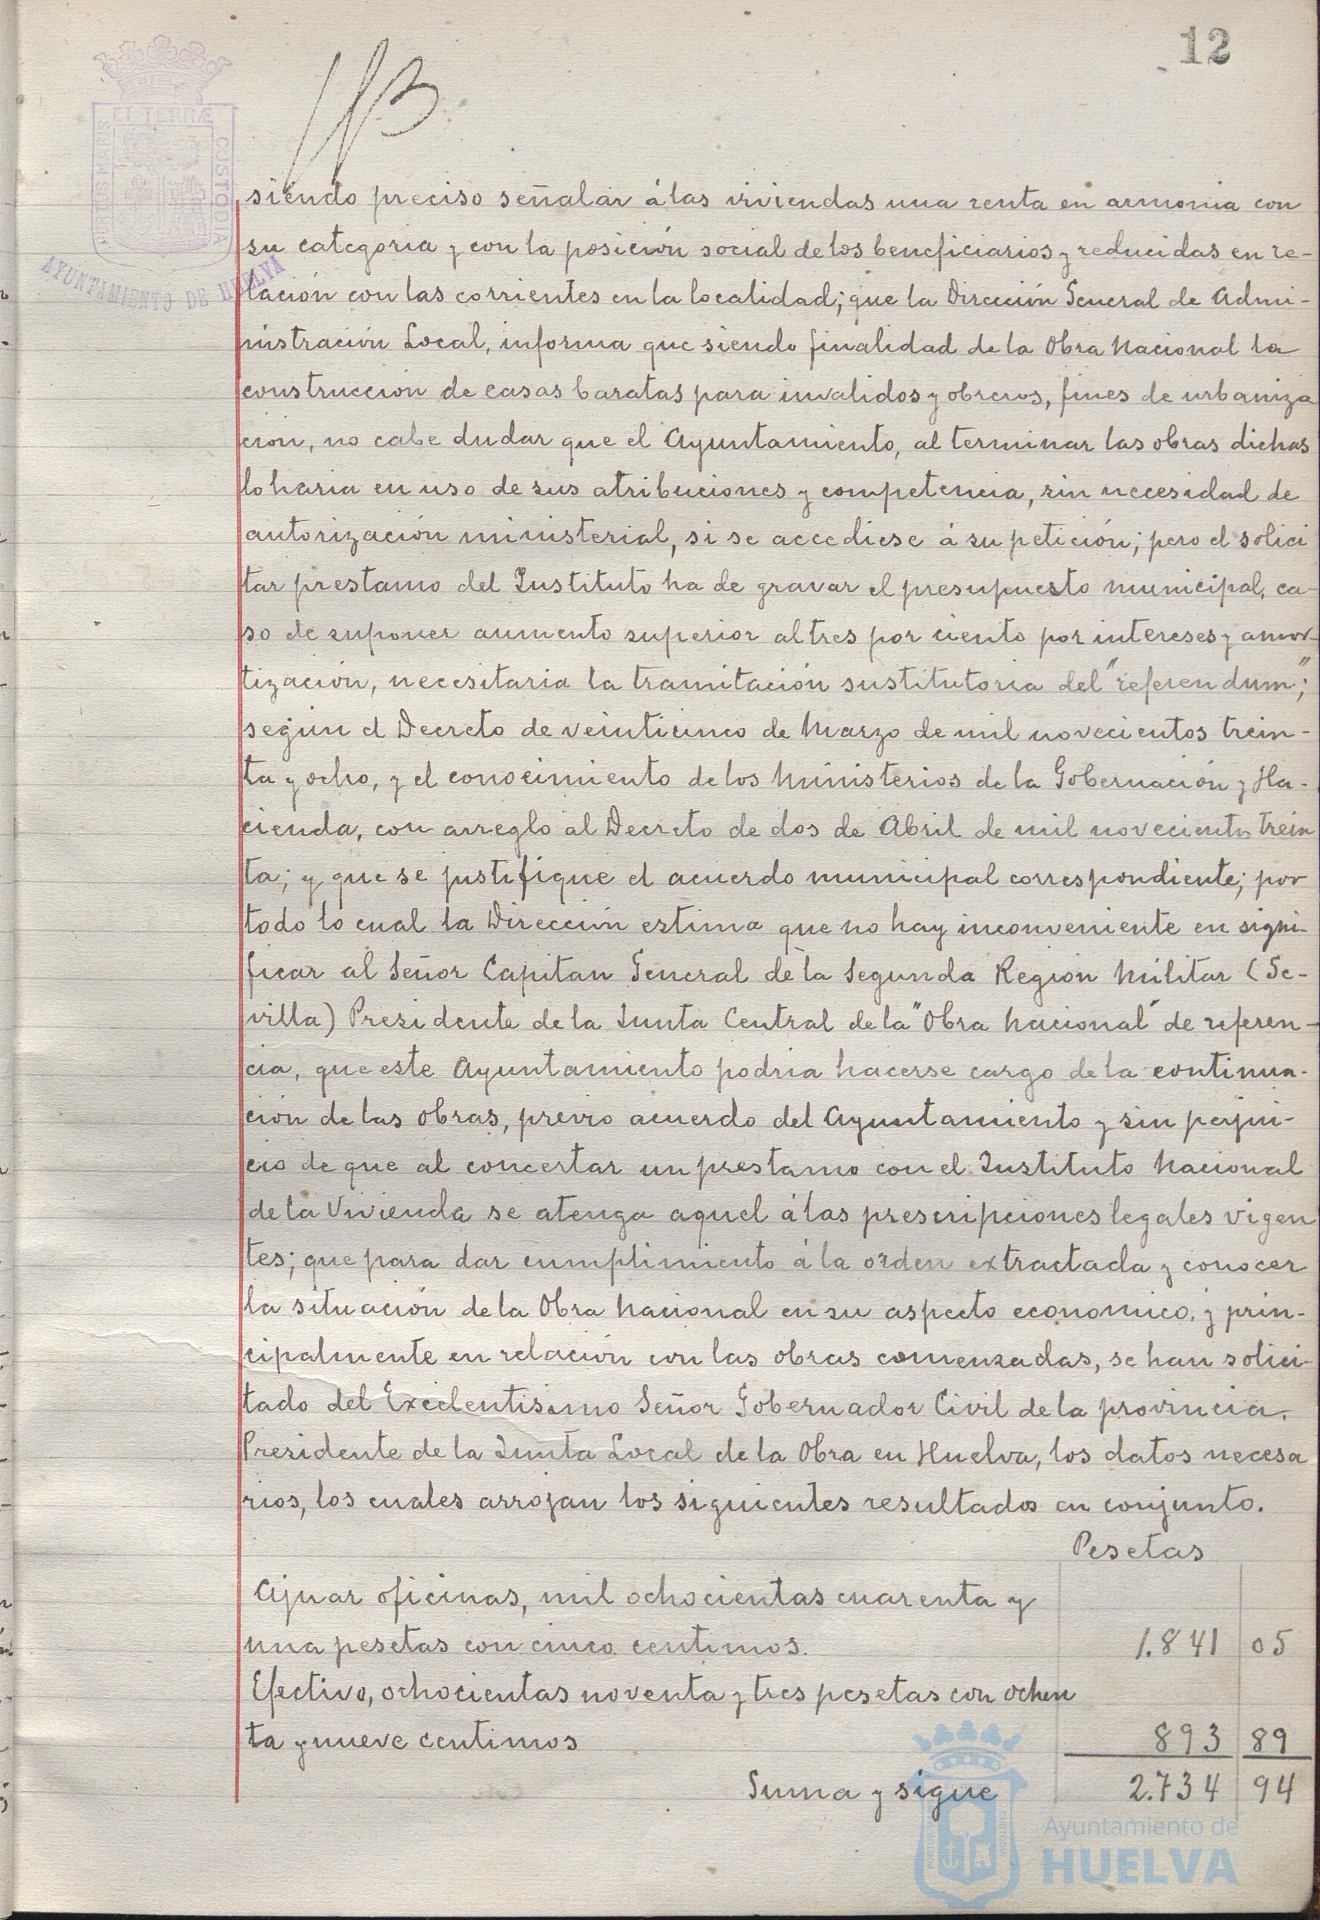 12
ET TERRÆ
PORTUS MARIS
CUSTODIA
AYUNTAMIENTO DE HUELVA
siendo preciso señalar á las viviendas una renta en armonia con
su categoria y con la posición social de los beneficiarios y reducidas en re-
lación con las corrientes en la localidad; que la Dirección General de Admi-
nistración Local, informa que siendo finalidad de la Obra Nacional la
construcción de casas baratas para invalidos y obreros, fines de urbaniza
ción, no cabe dudar que el Ayuntamiento, al terminar las obras dichas
lo haria en uso de sus atribuciones y competencia, sin necesidad de
autorización ministerial, si se accediese á su petición; pero el solici
tar prestamo del Instituto ha de gravar el presupuesto municipal, ca-
so de suponer aumento superior al tres por ciento por intereses y amor-
tización, necesitaria la tramitación sustitutoria del "referendum";
según el Decreto de veinticinco de Marzo de mil novecientos trein-
ta y ocho, y el conocimiento de los Ministerios de la Gobernación y Ha-
cienda, con arreglo al Decreto de dos de Abril de mil novecientos trein
ta; y que se justifique el acuerdo municipal correspondiente; por
todo lo cual la Dirección estima que no hay inconveniente en signi-
ficar al Señor Capitan General de la Segunda Region Militar (Se-
villa) Presidente de la Junta Central de la "Obra Nacional" de referen-
cia, que este Ayuntamiento podria hacerse cargo de la continua-
ción de las obras, previo acuerdo del Ayuntamiento y sin perjui-
cio de que al concertar un prestamo con el Instituto Nacional
de la Vivienda se atenga aquel á las prescripciones legales vigen
tes; que para dar cumplimiento á la orden extractada y conocer
la situación de la Obra Nacional en su aspecto economico, y prin-
cipalmente en relación con las obras comenzadas, se han solici-
tado del Excelentisimo Señor Gobernador Civil de la provincia,
Presidente de la Junta Local de la Obra en Huelva, los datos necesa
rios, los cuales arrojan los siguientes resultados en conjunto.
Pesetas
Ajuar oficinas, mil ochocientas cuarenta y
una pesetas con cinco centimos. 1.841 05
Efectivo, ochocientas noventa y tres pesetas con ochen
ta y nueve centimos 893 89
Suma y sigue 2.734 94
Ayuntamiento de
HUELVA